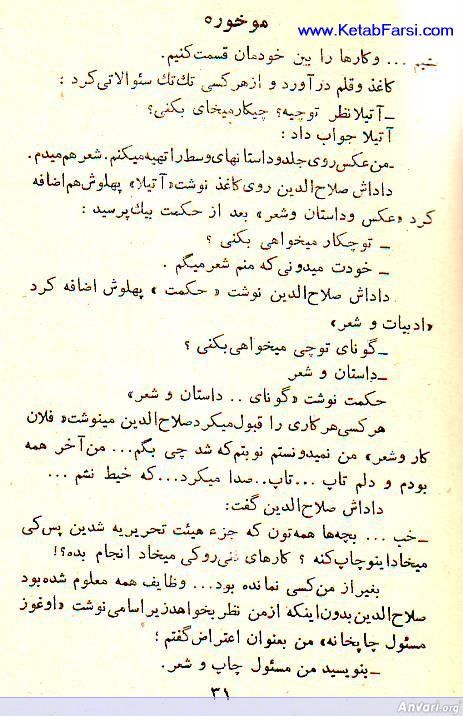 موخوره
www.KetabFarsi.com
... وکارها را بین خودمان قسمت‌کنیم.
کاغذ وقلم درآورد و ازهرکسی تك‌تك سئوالاتی‌کرد :
ـ آتیلا نظر توچیه؟ چیکارمیخای بکنی؟
آتیلا جواب داد :
ـ من عکس روی جلد و داستانهای وسط را تهیه میکنم. شعر هم میدم.
داداش صلاح‌الدین روی کاغذ نوشت «آتیلا» پهلوش هم اضافه
کرد «عکس و داستان وشعر» بعد از حکمت بیك پرسید :
ـ توچکار میخواهی بکنی ؟
ـ خودت میدونی‌که منم شعرمیگم .
داداش صلاح‌الدین نوشت « حکمت » پهلوش اضافه کرد
«ادبیات و شعر»
ـ گونای توچی میخواهی‌بکنی ؟
ـ داستان و شعر
حکمت نوشت «گونای .. داستان و شعر»
هرکسی‌هرکاری را قبول‌میکرد صلاح‌الدین مینوشت « فلان
کار وشعر» من نمیدونستم نوبتم‌که شد چی بگم... من‌آخر همه
بودم و دلم تاپ ... تاپ..صدا میکرد...که خیط نشم ...
داداش صلاح‌الدین گفت:
ـ خب ... بچه‌ها همه‌تون که جزء هیئت تحریریه شدین پس‌کی
میخاد اینو چاپ‌کنه ؟ کارهای فنی‌روکی میخاد انجام بده؟!
بغیراز من‌کسی نمانده بود... وظایف همه معلوم شده‌بود
صلاح‌الدین‌بدون‌اینکه ازمن نظربخواهد زیراسامی‌نوشت «اوغوز
مسئول چاپخانه» من بعنوان اعتراض‌گفتم ؛
ـ بنویسید من مسئول چاپ و شعر.
۳۱
Anvari.org